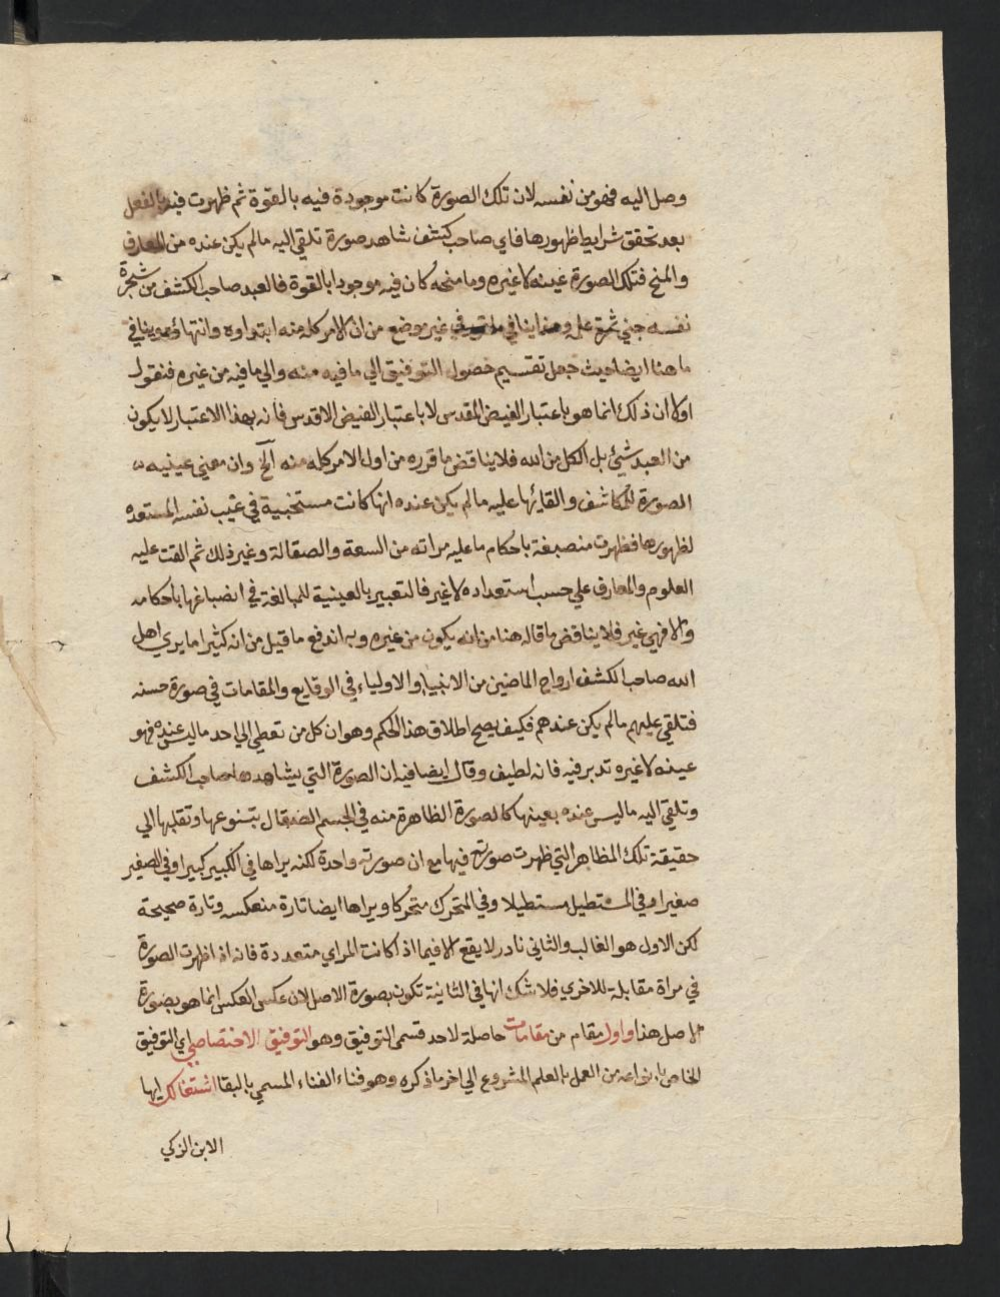 وصل اليه فهو من نفسه لان تلك الصورة كانت موجودة فيه بالقوة ثم ظهرت فيه بالفعل
بعد تحقق شرايط ظهورها فاي صاحب كشف شاهد صورة تلقي اليه مالم يكن عنده من المعارف
والمنح فتلك الصورة عينه لا غيره وما منحه كان فيه موجودا بالقوة فالعبد صاحب الكشف من شجرة
نفسه جني ثمرة علمه وهذا ينافي في غير موضع من ان الامر كله منه ابتداوه وانتهاؤه وينافي
ما هنا ايضا حيث جعل تقسيم حصول التوفيق الي ما فيه منه والي ما فيه من غيره فنقول
اولا ان ذلك انما هو باعتبار الفيض المقدس لا باعتبار الفيض الاقدس فانه بهذا الاعتبار لا يكون
من العبد شئ بل الكل من الله فلا يناقض ما قرره من اول الامر كله منه الخ وان معني عينيه
الصورة للمكاشف والقائها عليه مالم يكن عنده انها كانت مستخبية في غيب نفسه المستعده
لظهورها فظهرت منصبغة باحكام ما عليه مراته من السعة والصقالة وغير ذلك ثم القت عليه
العلوم والمعارف علي حسب استعداده لا غير فالتعبير بالعينية للمبالغة في انصباغها باحكامه
والا فهي غير فلا يناقض ما قاله هنا من انه يكون من غيره وبه اندفع ما قيل من انه كثيرا ما يري اهل
الله صاحب الكشف ارواح الماضين من الانبياء والاولياء في الوقايع والمقامات في صورة حسنه
فتلقي عليهم مالم يكن عندهم فكيف يصح اطلاق هذا الحكم وهو ان كل من تعطي الي احد ما ليس عنده فهو
عينه لا غيره تدبر فيه فانه لطيف وقال ايضا فيه ان الصورة التي يشاهدها صاحب الكشف
وتلقي اليه ما ليس عنده بعينها كالصورة الظاهرة منه في الجسم الصقال بتنوعها وتقلبها الي
حقيقة تلك المظاهر التي ظهرت صورته فيها مع ان صورته واحدة لكنه يراها في الكبير كبيرا وفي الصغير
صغيرا وفي المستطيل مستطيلا وفي المتحرك متحركا ويراها ايضا تارة منعكسه وتارة صحيحة
لكن الاول هو الغالب والثاني نادر لا يقع الا فيما اذا كانت المراي متعددة فانه اذا ظهرت الصورة
في مراة مقابلة للاخري فلا شك انها في الثانية تكون بصورة الاصل لان عكس العكس انما هو بصورة
الاصل هذا واول مقام من مقامات حاصلة لاحد قسمي التوفيق وهو التوفيق الاختصاصي اي التوفيق
الخاص بانواعه من العمل بالعلم المشروع الي اخر ما ذكره وهو فناء الفناء المسمي بالبقا اشتغالك ايها
الابن الزكي